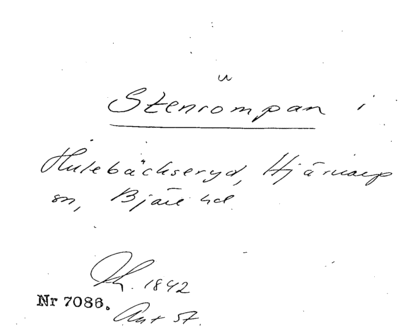 Stenrömpan i
Hulebäckseryd, Hjärnarp
sn, Bjäre hd.
1842
Nr 7086.
Ant St.